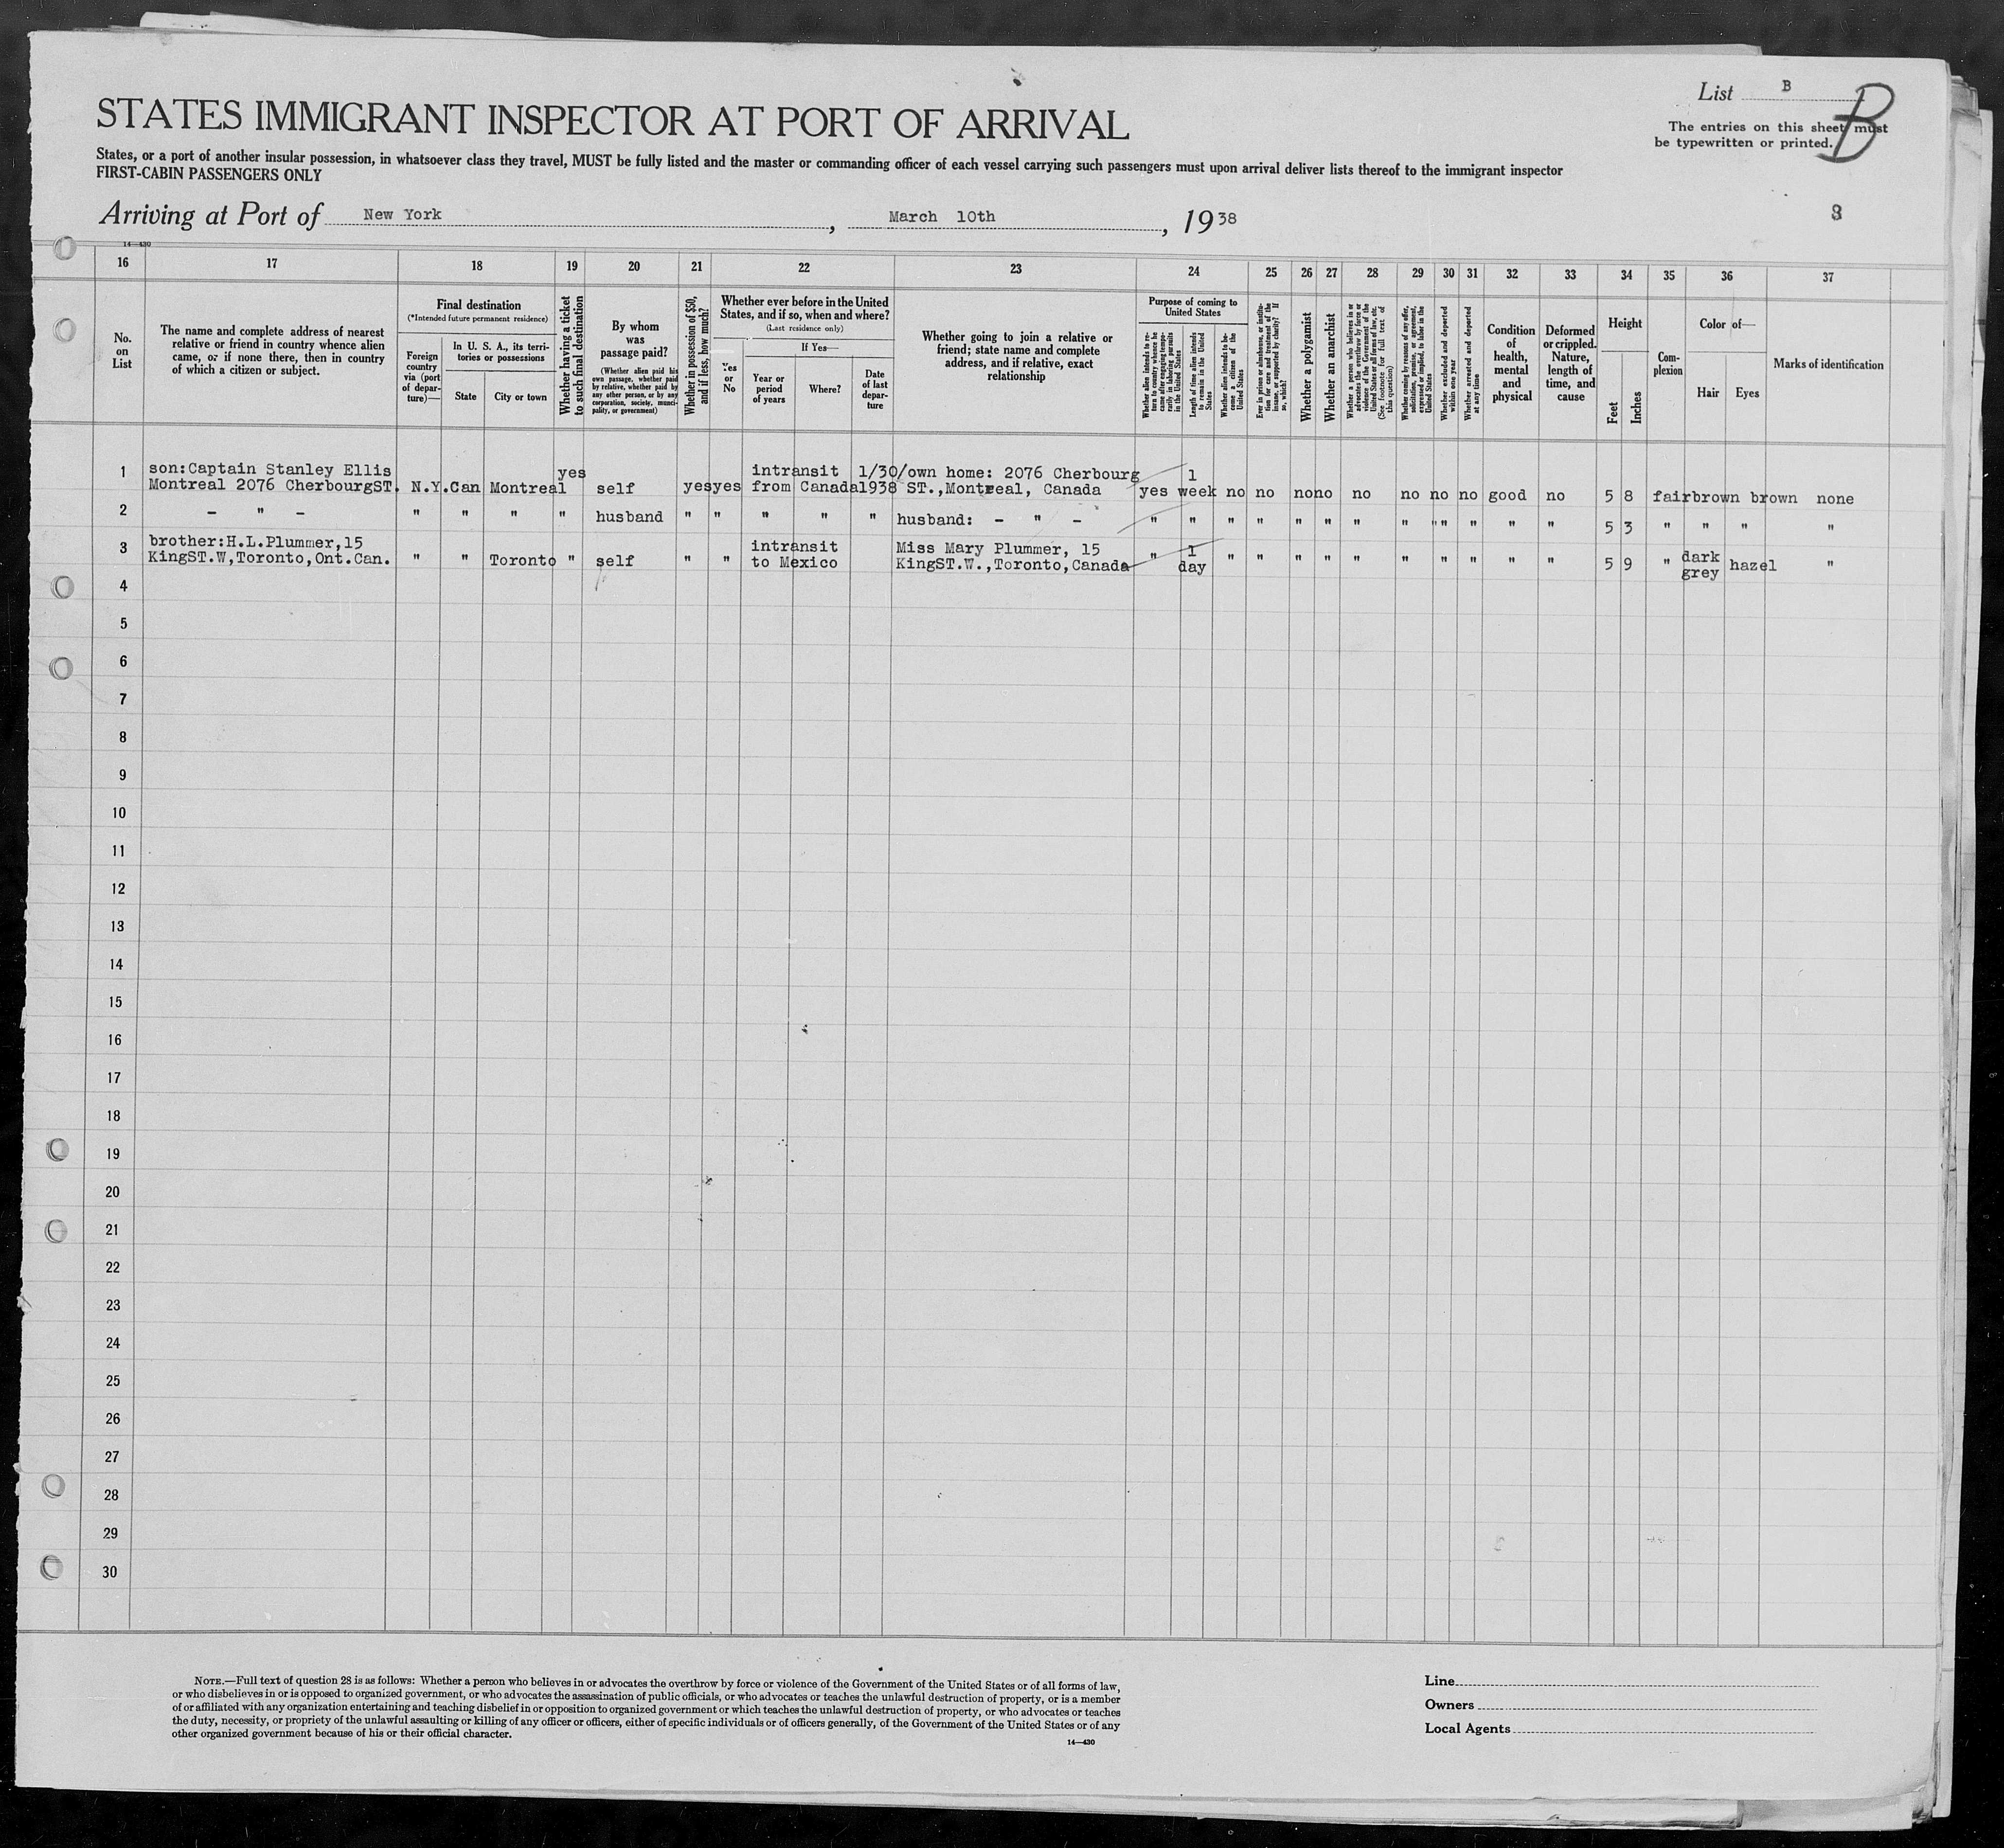 List B
B
The entries on this sheet must
be typewritten or printed.
STATES IMMIGRANT INSPECTOR AT PORT OF ARRIVAL
States, or a port of another insular possession, in whatsoever class they travel, MUST be fully listed and the master or commanding officer of each vessel carrying such passengers must upon arrival deliver lists thereof to the immigrant inspector
FIRST-CABIN PASSENGERS ONLY
Arriving at Port of New York, March 10th, 1938
14—430
16 17 18 19 20 21 22 23 24 25 26 27 28 29 30 31 32 33 34 35 36 37
No. on List
The name and complete address of nearest
relative or friend in country whence alien
came, or if none there, then in country
of which a citizen or subject.
Final destination
(*Intended future permanent residence)
Foreign country via (port of departure)—
In U. S. A., its territories or possessions
State
City or town
Whether having a ticket to such final destination
By whom was passage paid?
(Whether alien paid his own passage, whether paid by relative, whether paid by any other person, or by any corporation, society, municipality, or government)
Whether in possession of $50, and if less, how much?
Whether ever before in the United
States, and if so, when and where?
(Last residence only)
Yes or No
If Yes—
Year or period of years
Where?
Date of last departure
Whether going to join a relative or
friend; state name and complete
address, and if relative, exact
relationship
Purpose of coming to
United States
Whether alien intends to return to country whence he came after engaging temporarily in laboring pursuits in the United States
Length of time alien intends to remain in the United States
Whether alien intends to become a citizen of the United States
Ever in prison or almshouse, or institution for care and treatment of the insane, or supported by charity? If so, which?
Whether a polygamist
Whether an anarchist
Whether a person who believes in or advocates the overthrow by force or violence of the Government of the United States or all forms of law, etc. (See footnote for full text of this question)
Whether coming by reasons of any offer, solicitation, promise, or agreement, expressed or implied, to labor in the United States
Whether excluded and deported within one year
Whether arrested and deported at any time
Condition of health, mental and physical
Deformed or crippled. Nature, length of time, and cause
Height
Feet
Inches
Complexion
Color of—
Hair
Eyes
Marks of identification
1 son:Captain Stanley Ellis yes intransit 1/30/ own home: 2076 Cherbourg 1
Montreal 2076 CherbourgST. N.Y. Can Montreal self yes yes from Canada 1938 ST.,Montreal, Canada yes week no no no no no no no no good no 5 8 fair brown brown none
2 - " - " " " " husband " " " " " husband: - " - " " " " " " " " " " " " 5 3 " " " "
3 brother:H.L.Plummer,15 intransit Miss Mary Plummer, 15 1 dark
KingST.W,Toronto,Ont.Can. " " Toronto " self " " to Mexico KingST.W.,Toronto,Canada " day " " " " " " " " " " 5 9 " grey hazel "
4
5
6
7
8
9
10
11
12
13
14
15
16
17
18
19
20
21
22
23
24
25
26
27
28
29
30
NOTE.—Full text of question 28 is as follows: Whether a person who believes in or advocates the overthrow by force or violence of the Government of the United States or of all forms of law,
or who disbelieves in or is opposed to organized government, or who advocates the assassination of public officials, or who advocates or teaches the unlawful destruction of property, or is a member
of or affiliated with any organization entertaining and teaching disbelief in or opposition to organized government or which teaches the unlawful destruction of property, or who advocates or teaches
the duty, necessity, or propriety of the unlawful assaulting or killing of any officer or officers, either of specific individuals or of officers generally, of the Government of the United States or of any
other organized government because of his or their official character.
14—430
Line
Owners
Local Agents